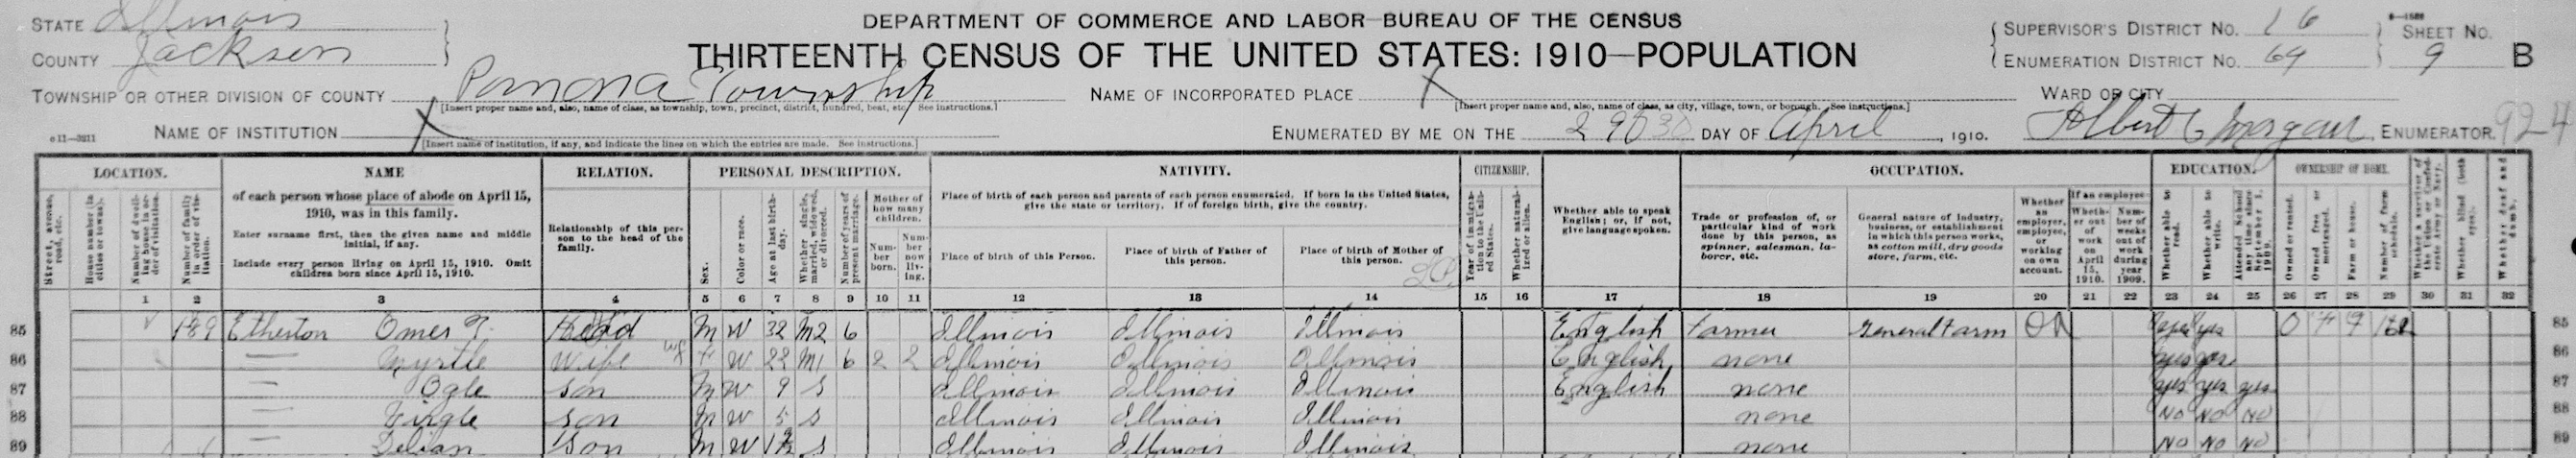 STATE Illinois
COUNTY Jackson
DEPARTMENT OF COMMERCE AND LABOR-BUREAU OF THE CENSUS
THIRTEENTH CENSUS OF THE UNITED STATES: 1910-POPULATION
SUPERVISOR'S DISTRICT No. 16
ENUMERATION DISTRICT No. 69
8-1588
SHEET No.
9 B
TOWNSHIP OR OTHER DIVISION OF COUNTY Pomona Township
[Insert proper name and, also, name of class, as township, town, precinct, district, hundred, beat, etc. See instructions.]
NAME OF INCORPORATED PLACE X
[Insert proper name and, also, name of class, as city, village, town, or borough. See instructions.]
WARD OF CITY
e11-3211 NAME OF INSTITUTION X
[Insert name of institution, if any, and indicate the lines on which the entries are made. See instructions.]
ENUMERATED BY ME ON THE 29 30 DAY OF April, 1910. Albert C Morgan, ENUMERATOR. 924
LOCATION. NAME RELATION. PERSONAL DESCRIPTION. NATIVITY. CITIZENSHIP. OCCUPATION. EDUCATION. OWNERSHIP OF HOME.
Street, avenue, road, etc.
House number (in cities or towns).
Number of dwelling house in order of visitation.
Number of family in order of visitation.
of each person whose place of abode on April 15, 1910, was in this family.
Enter surname first, then the given name and middle initial, if any.
Include every person living on April 15, 1910. Omit children born since April 15, 1910.
Relationship of this person to the head of the family.
Sex.
Color or race.
Age at last birthday.
Whether single, married, widowed, or divorced.
Number of years of present marriage.
Mother of how many children.
Number born.
Number now living.
Place of birth of each person and parents of each person enumerated. If born in the United States, give the state or territory. If of foreign birth, give the country.
Place of birth of this Person.
Place of birth of Father of this person.
Place of birth of Mother of this person.
Year of immigration to the United States.
Whether naturalized or alien.
Whether able to speak English; or, if not, give language spoken.
Trade or profession of, or particular kind of work done by this person, as spinner, salesman, laborer, etc.
General nature of industry, business, or establishment in which this person works, as cotton mill, dry goods store, farm, etc.
Whether an employer, employee, or working on own account.
If an employee-
Whether out of work on April 15, 1910.
Number of weeks out of work during year 1909.
Whether able to read.
Whether able to write.
Attended school any time since September 1, 1909.
Owned or rented.
Owned free or mortgaged.
Farm or house.
Number of farm schedule.
Whether a survivor of the Union or Confederate Army or Navy.
Whether blind (both eyes).
Whether deaf and dumb.
1 2 3 4 5 6 7 8 9 10 11 12 13 14 15 16 17 18 19 20 21 22 23 24 25 26 27 28 29 30 31 32
85 189 Etherton Omer T. Head M W 32 M2 6 Illinois Illinois Illinois English Farmer General Farm OA yes yes O F F 85
86 — Myrtle Wife F W 22 M1 6 2 2 Illinois Illinois Illinois English none yes yes 86
87 — Ogle son M W 9 S Illinois Illinois Illinois English none yes yes yes 87
88 — Virgle son M W 5 S Illinois Illinois Illinois none No No No 88
89 — Delian Son M W S Illinois Illinois Illinois none No No No 89